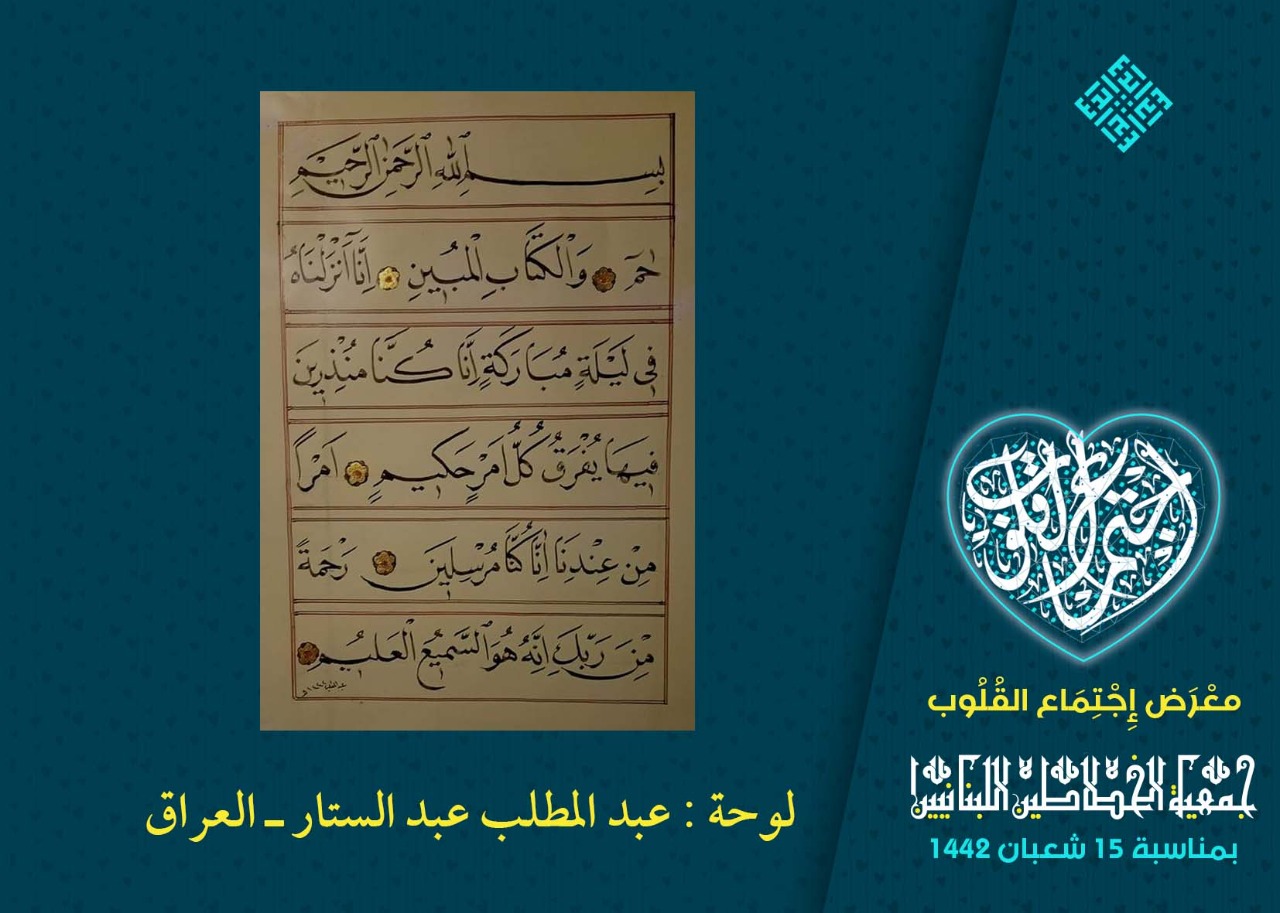 بِسْمِ اللهِ الرَّحْمٰنِ الرَّحِيْمِ
حٰمٓ وَالْكِتَابِ الْمُبِينِ اِنَّا اَنْزَلْنَاهُ
فِى لَيْلَةٍ مُبَارَكَةٍ اِنَّا كُنَّا مُنْذِرِينَ
فِيهَا يُفْرَقُ كُلُّ اَمْرٍ حَكِيمٍ اَمْرًا
مِنْ عِنْدِنَا اِنَّا كُنَّا مُرْسِلِينَ رَحْمَةً
مِنْ رَبِّكَ اِنَّهُ هُوَ السَّمِيعُ الْعَلِيمُ
لوحة : عبد المطلب عبد الستار ـ العراق
اجتماع القلوب
معْرَض إِجْتِمَاع القُلُوب
جمعية الخطاطين اللبنانيين
بمناسبة 15 شعبان 1442